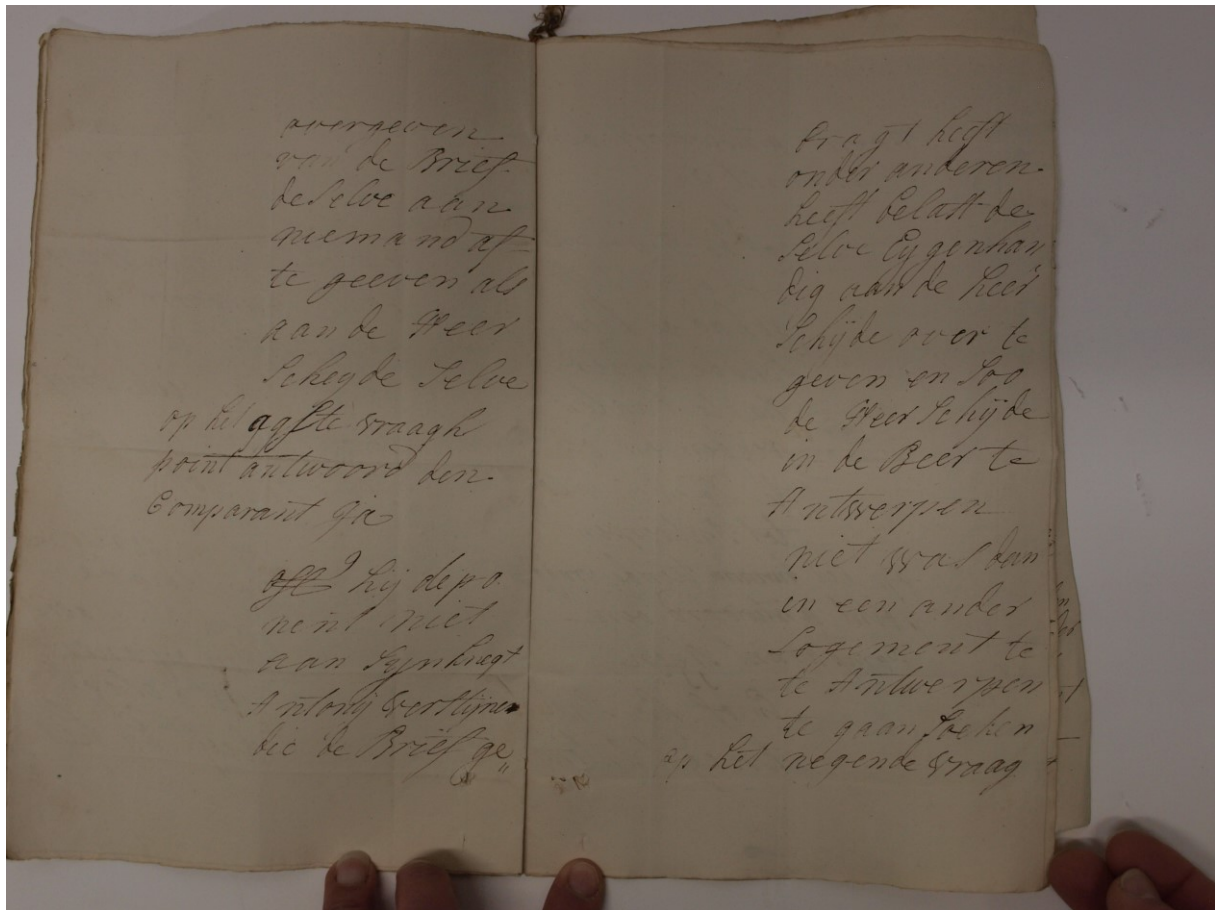 overgeven
van de Brief
deselve aan
niemand af
te geeven als
aan de Heer
Scheyde selve
op het agste vraagh
point antwoord den
Comparant Ja
off hij depo
nent niet
aan syn knegt
Antony Verstijnen
die de Brief ge„
bragt heeft
onder anderen
heeft belast de
selve Eygenhan„
dig aan de heer
Schijde over te
geven en soo
de Heer Schijde
in de Beer te
Antwerpen
niet was dan
in een ander
Logement te
te Antwerpen
te gaan soeken
op het negende vraag